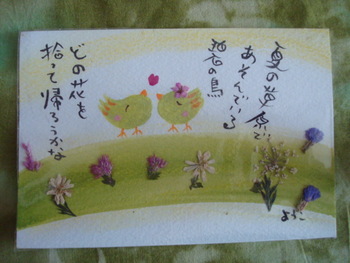 夏の草原で
あそんでいる
の鳥
どの花を
拾って帰ろうかな
ようこ